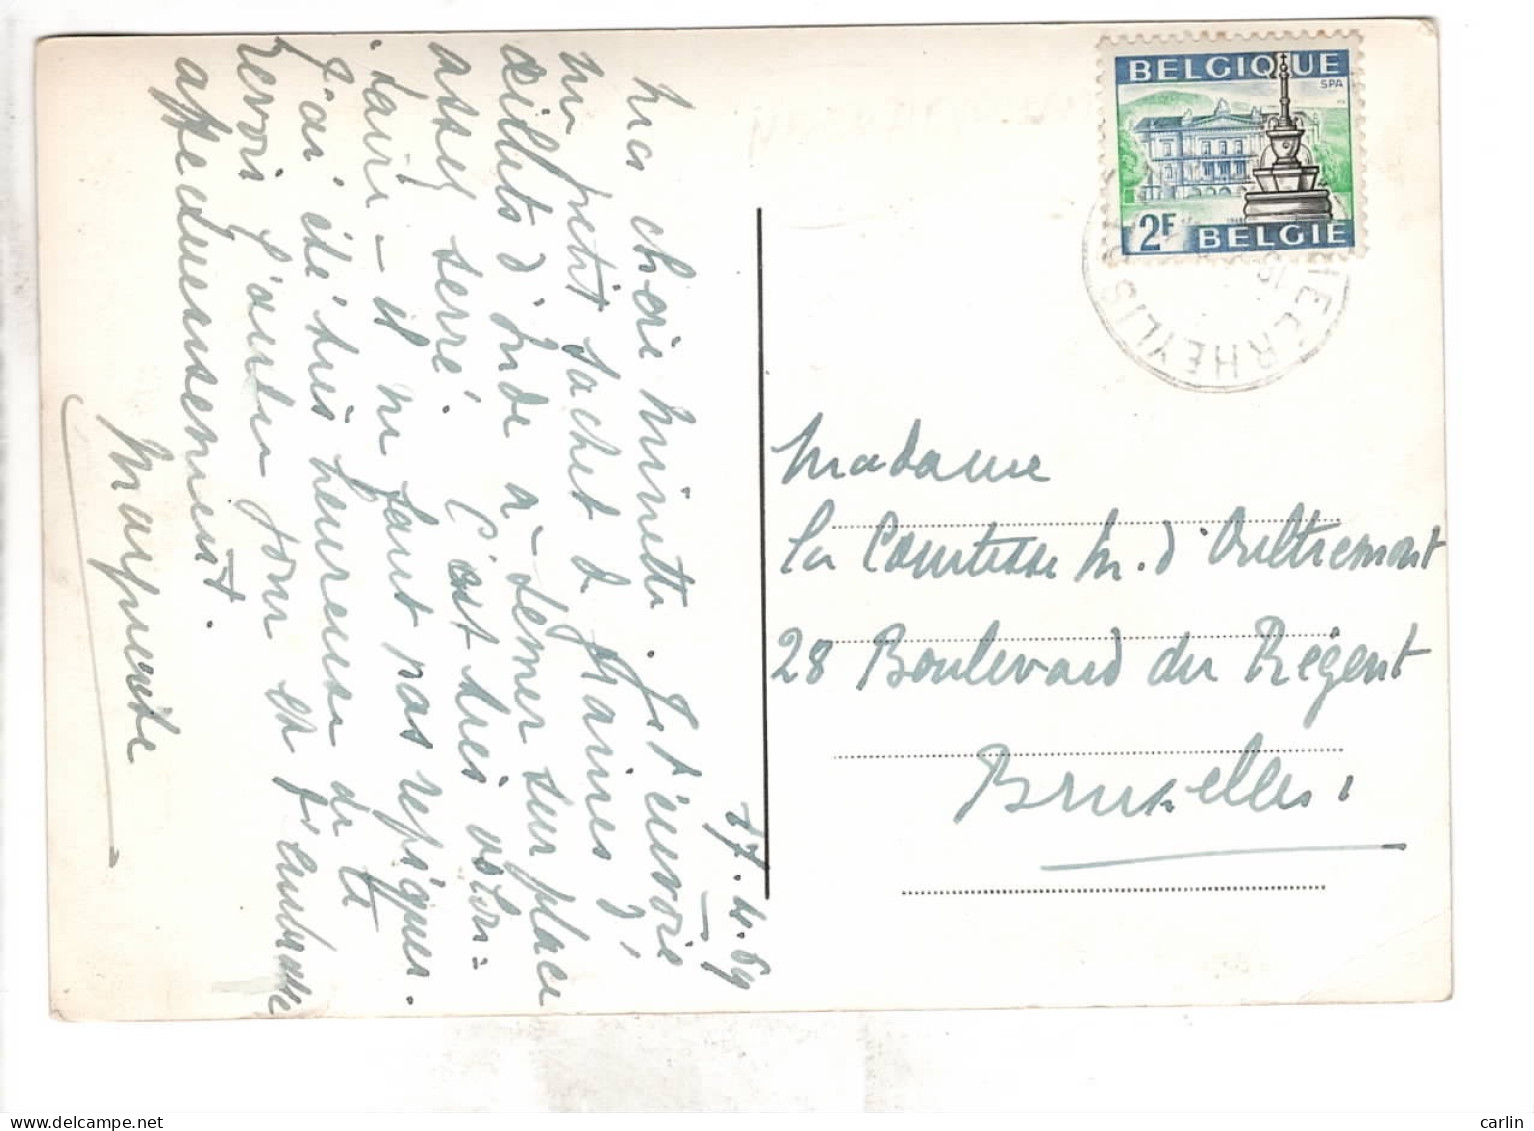 27.4.69
Ma chérie Minette. Je t'envoie
un petit sachet de graines d'
œillets d'Inde à semer sur place
assez serré. C'est très volon=
taire - il ne faut pas repiquer.
J'ai été très heureuse de te
revoir l'autre jour et t'embrasse
affectueusement.
Marguerite
BELGIQUE
SPA
2F
1968
BELGIE
NEERHEYLISSEM
Madame
La Comtesse M. d'Oultremont
28 Boulevard du Régent
Bruxelles.
delcampe.net
carlin